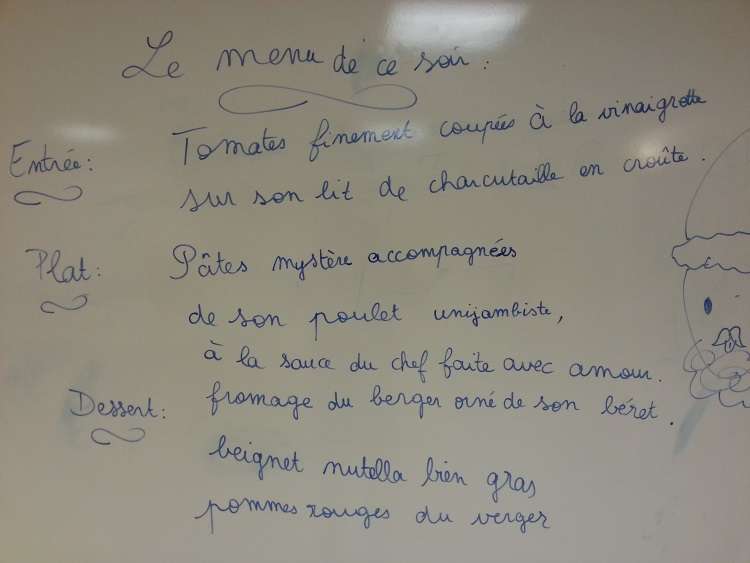 Le menu de ce soir :
Entrée : Tomates finement coupées à la vinaigrette
sur son lit de charcutaille en croûte.
Plat : Pâtes mystère accompagnées
de son poulet unijambiste,
à la sauce du chef faite avec amour.
Dessert : fromage du berger orné de son béret.
beignet nutella bien gras
pommes rouges du verger